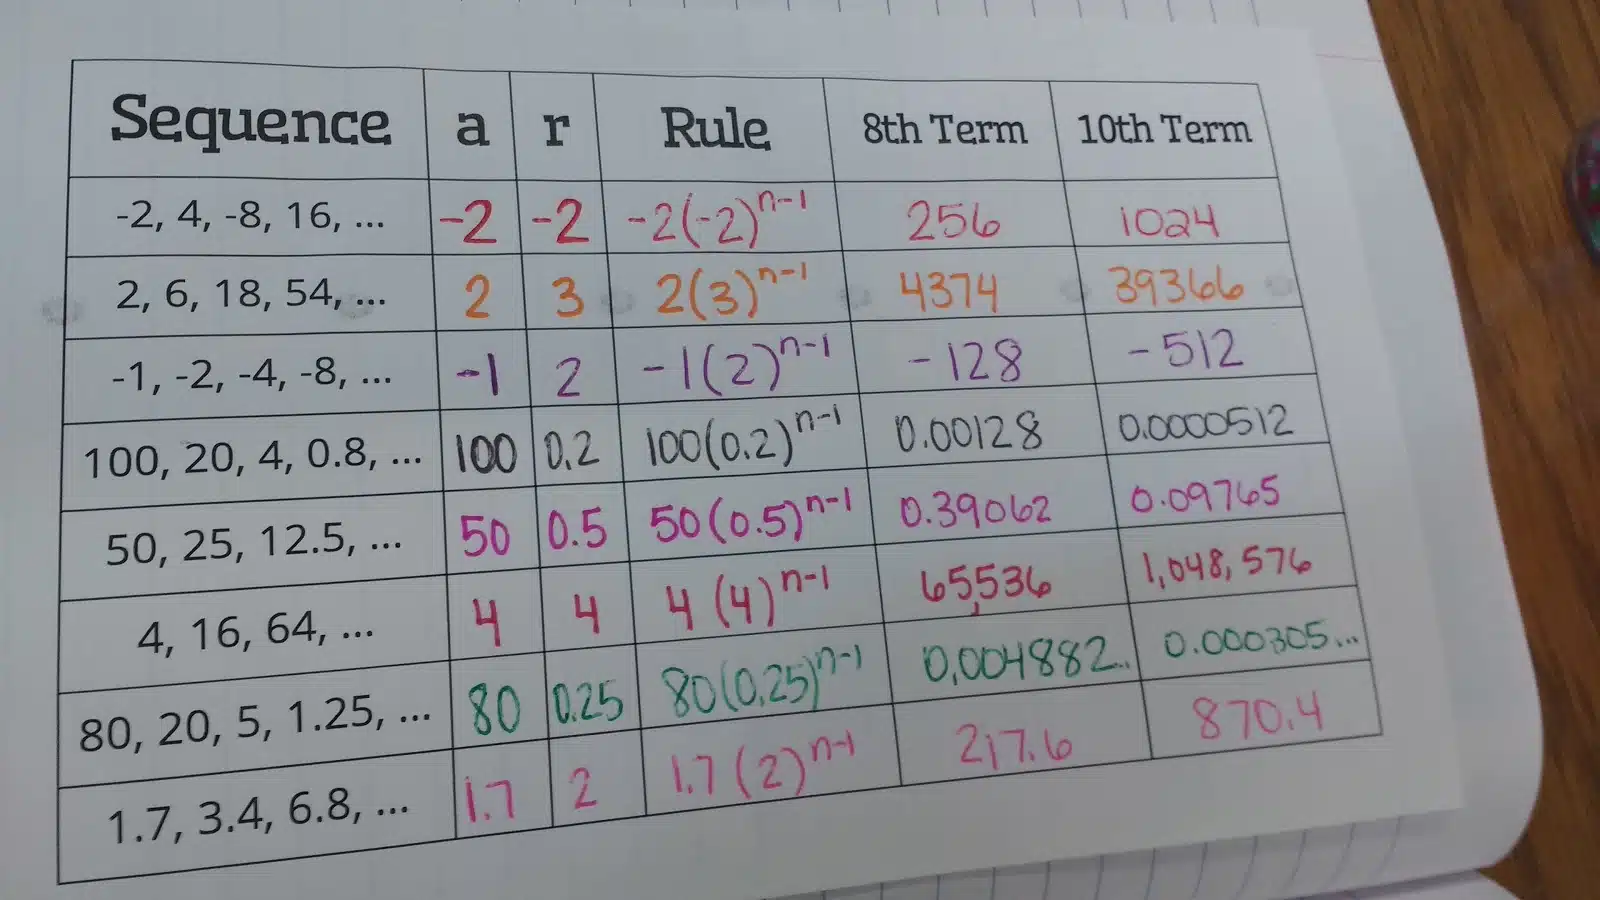 Sequence a r Rule 8th Term 10th Term
-2, 4, -8, 16, ... -2 -2 -2(-2)^{n-1} 256 1024
2, 6, 18, 54, ... 2 3 2(3)^{n-1} 4374 39366
-1, -2, -4, -8, ... -1 2 -1(2)^{n-1} -128 -512
100, 20, 4, 0.8, ... 100 0.2 100(0.2)^{n-1} 0.00128 0.0000512
50, 25, 12.5, ... 50 0.5 50(0.5)^{n-1} 0.39062 0.09765
4, 16, 64, ... 4 4 4(4)^{n-1} 65,536 1,048,576
80, 20, 5, 1.25, ... 80 0.25 80(0.25)^{n-1} 0.004882.. 0.000305...
1.7, 3.4, 6.8, ... 1.7 2 1.7(2)^{n-1} 217.6 870.4